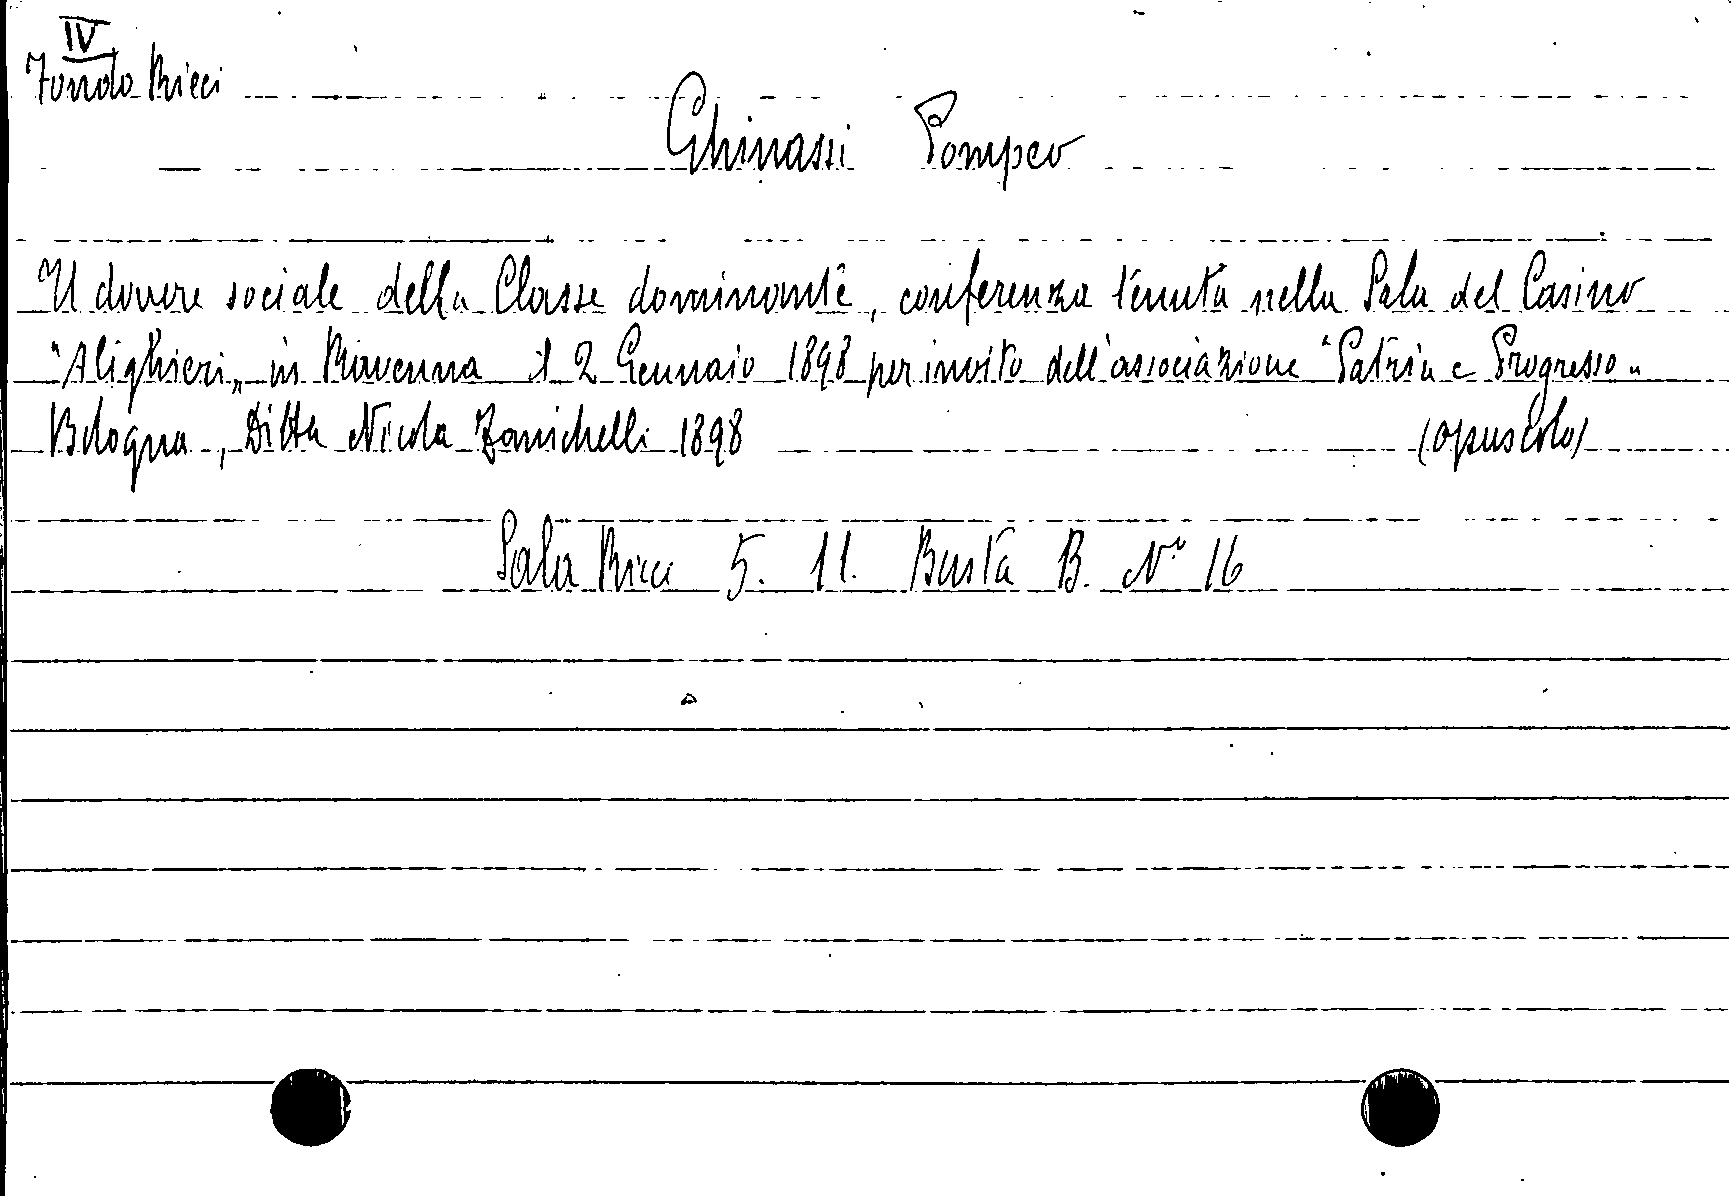 IV
Fondo Ricci
Ghinassi Pompeo
Il dovere sociale della Classe dominante, conferenza tenuta nella Sala del Casino
"Alighieri„ in Ravenna il 2 Gennaio 1898 per invito dell'associazione "Patria e Progresso„
Bologna, Ditta Nicola Zanichelli 1898 (opuscolo)
Sala Ricci 5. 11. Busta B. N° 16